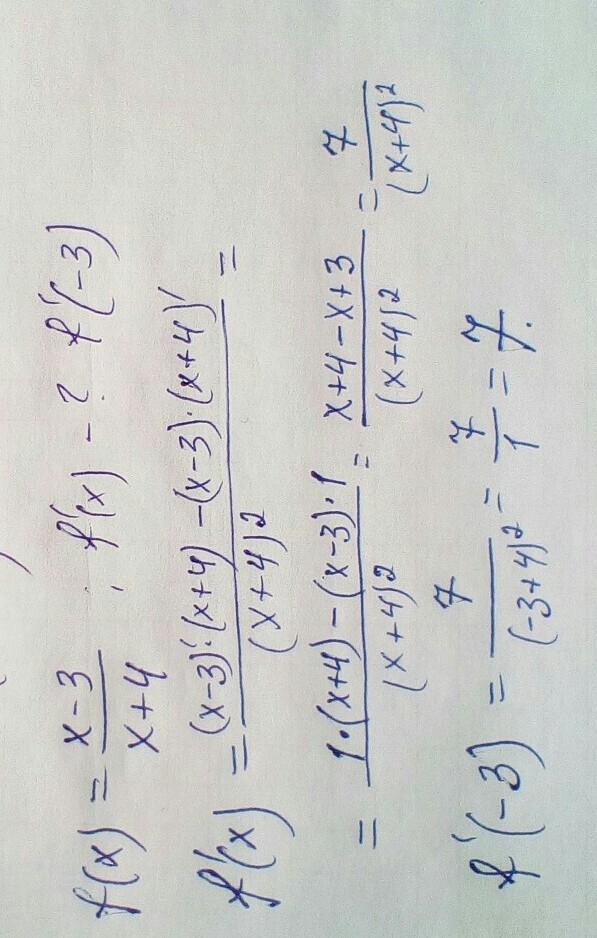 f(x) = \frac{x-3}{x+4}, f'(x) - ? f'(-3)
f'(x) = \frac{(x-3)'·(x+4) - (x-3)·(x+4)'}{(x+4)^2} =
= \frac{1·(x+4) - (x-3)·1}{(x+4)^2} = \frac{x+4-x+3}{(x+4)^2} = \frac{7}{(x+4)^2}
f'(-3) = \frac{7}{(-3+4)^2} = \frac{7}{1} = 7.